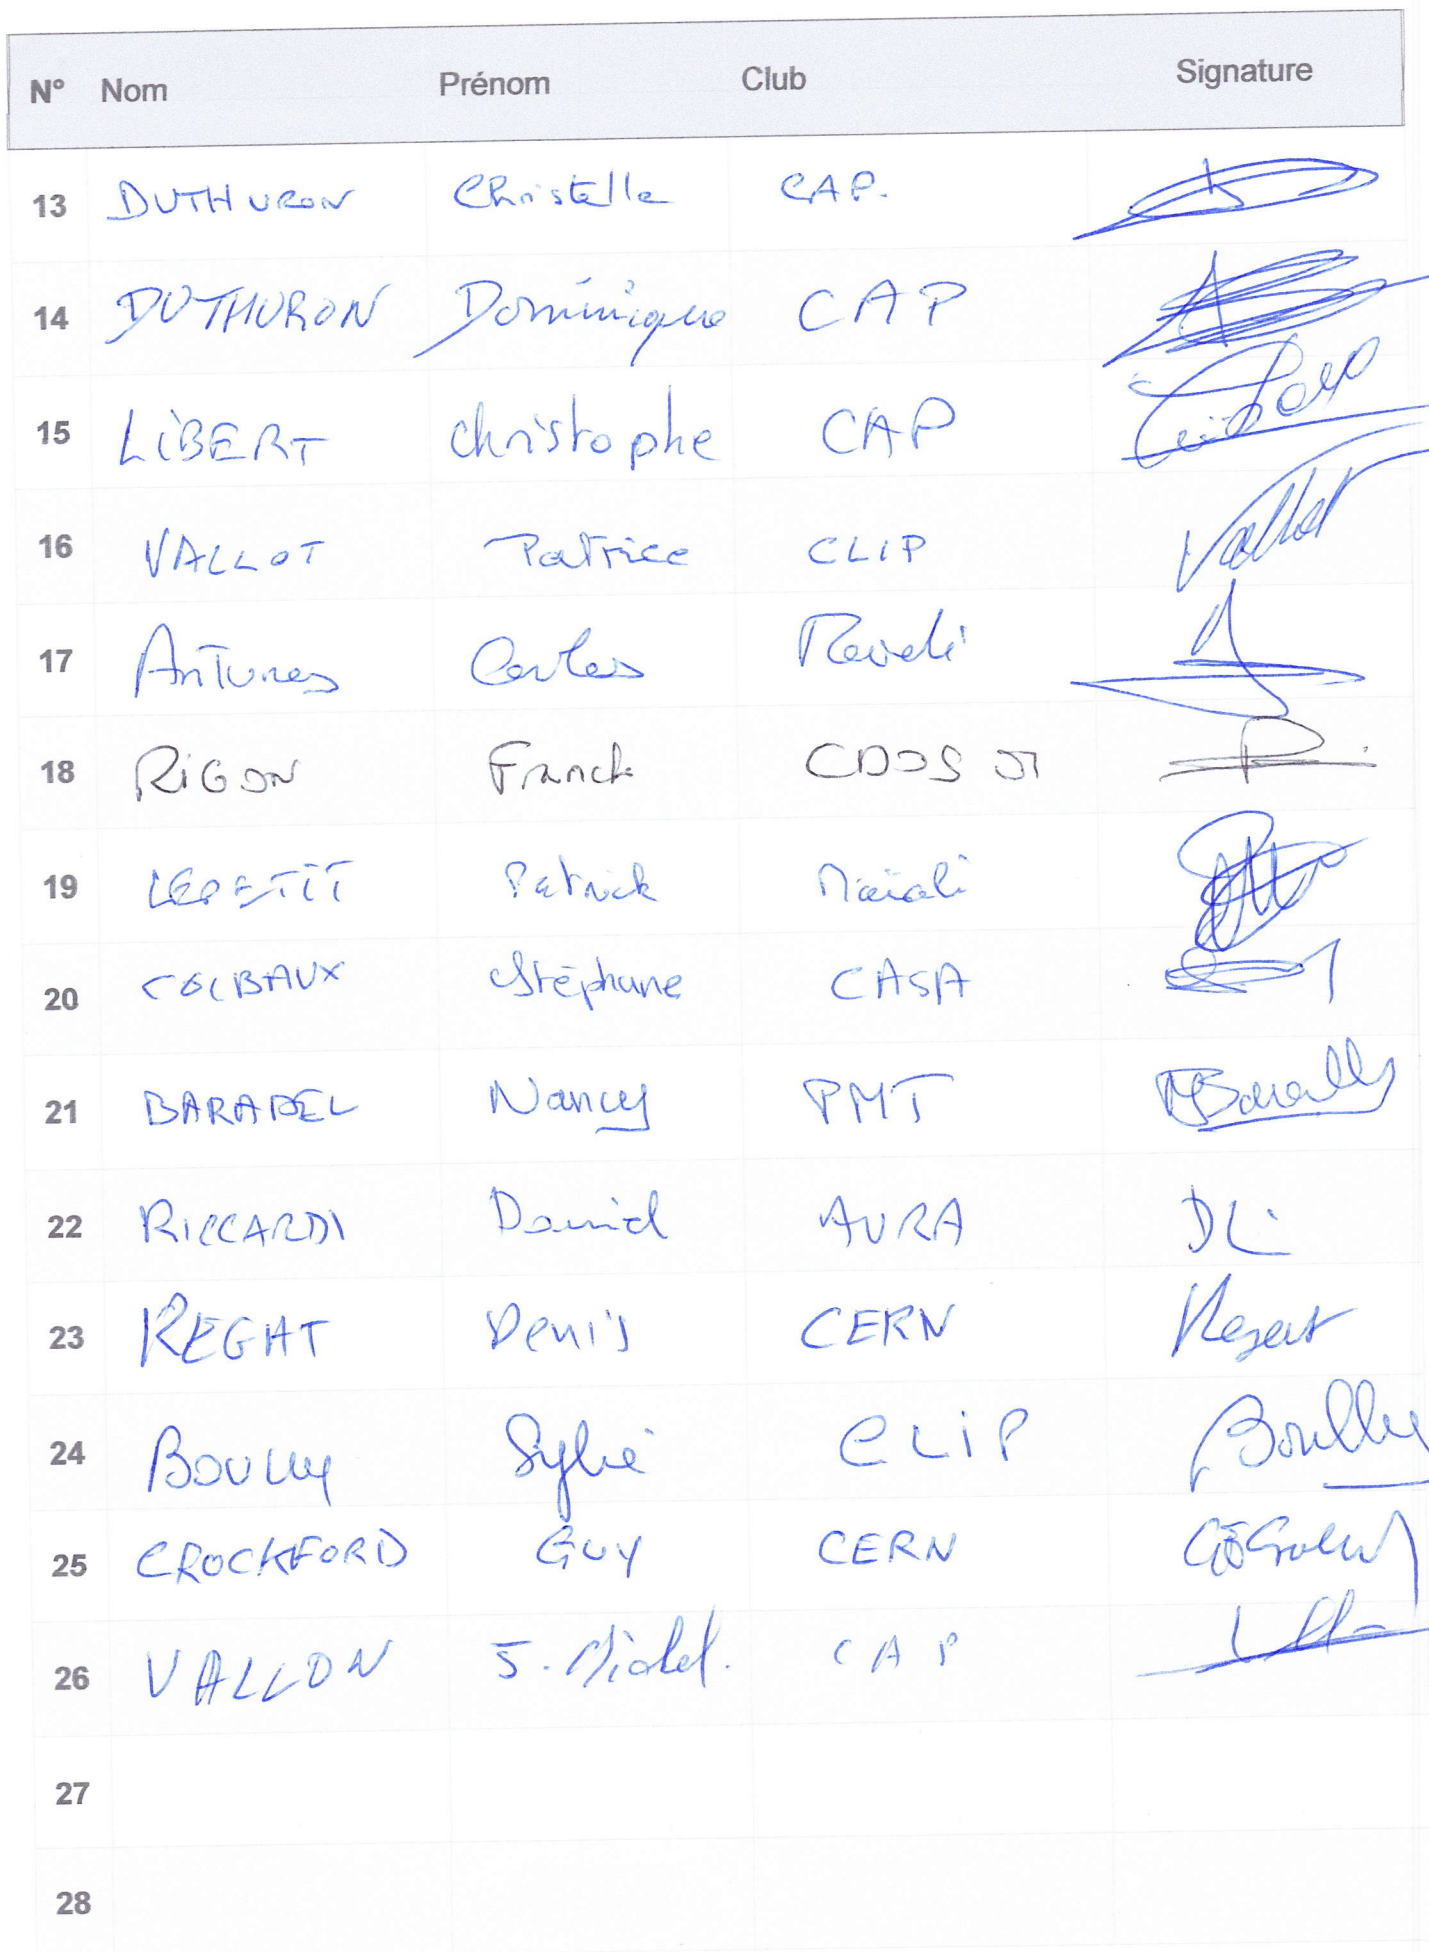 N° Nom Prénom Club Signature
13 DUTHURON Christelle CAP.
14 DUTHURON Dominique CAP
15 LiBERT christophe CAP
16 VALLOT Patrice CLIP Vallot
17 AnTunes Carlos
18 RiGON Franck CDOS
19 LEPETiT Patrick
20 COLBAUX Stéphane CASA
21 BARADEL Nancy PMT
22 RICCARDI David AURA
23 REGHT Denis CERN
24 BOULLY Sylvie CLiP Boully
25 CROCKFORD GUY CERN
26 VALLON J. Michel. CAP
27
28